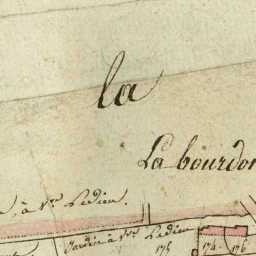 la
La bourdon
à Vve Ledieu.
Jardin à Vve Ledieu
175 174 176